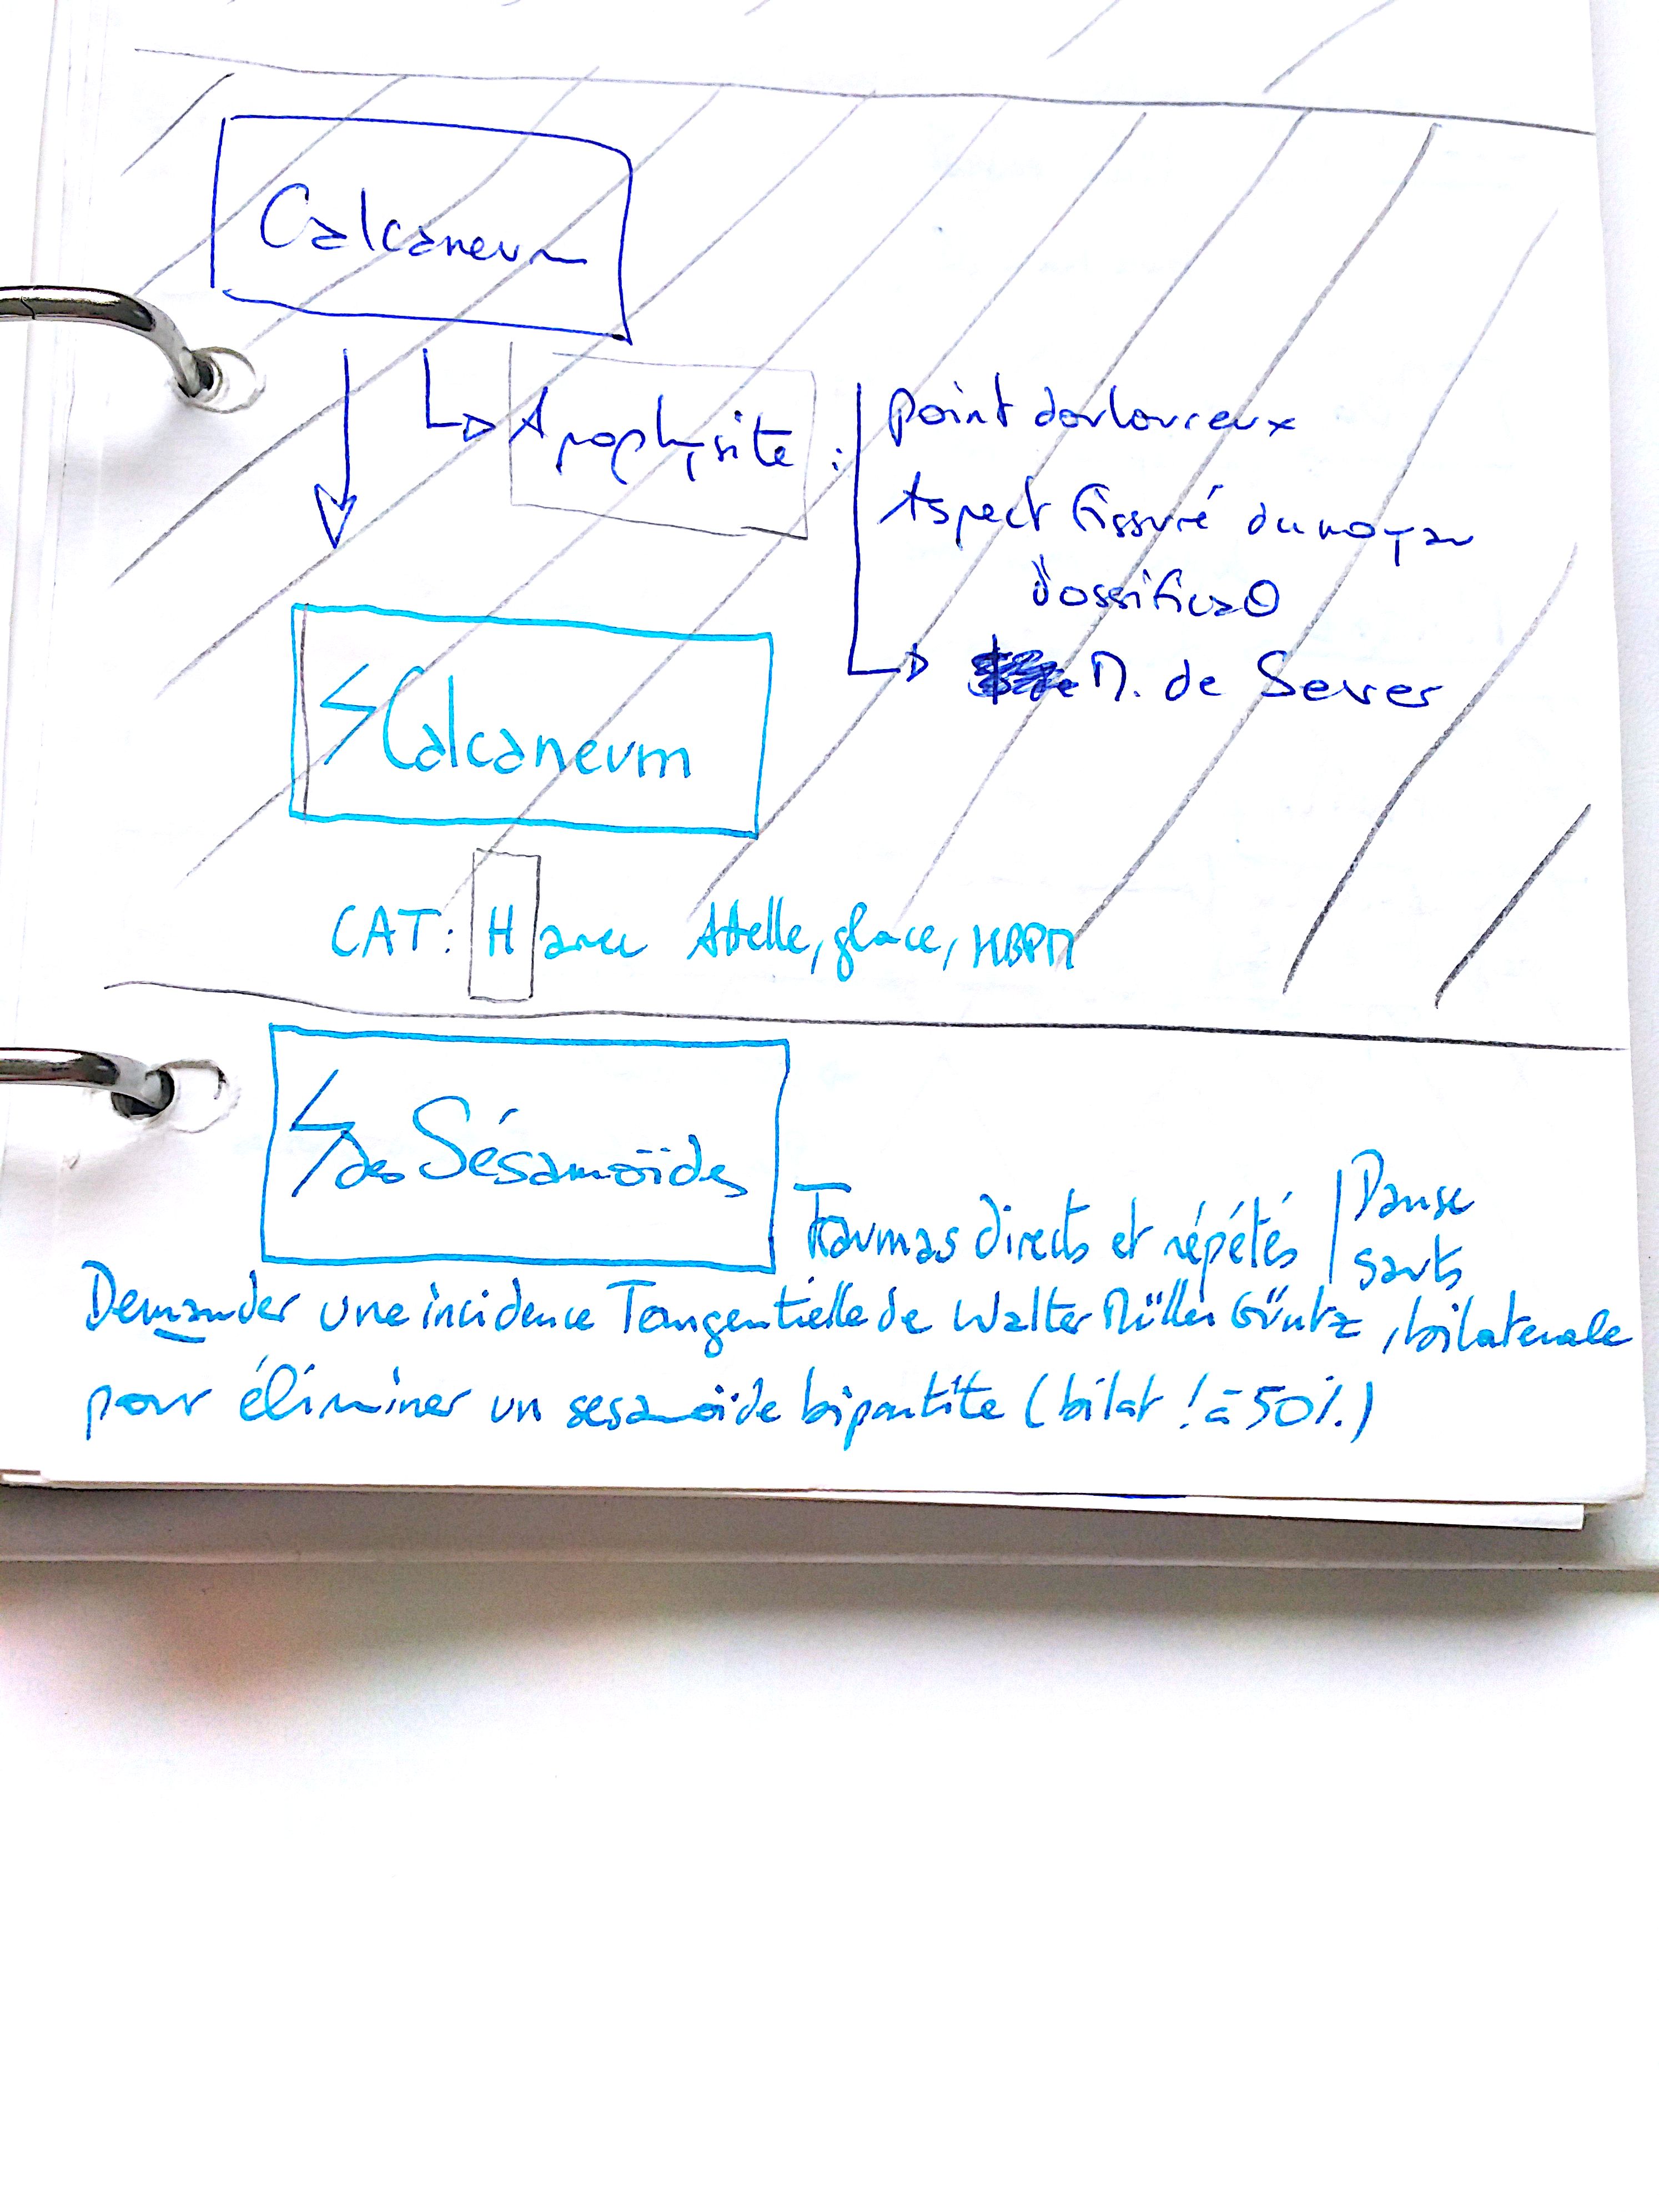 Calcaneum
Apophysite :
point douloureux
Aspect fissuré du noyau
d'ossifica⊖
M. de Sever
Calcaneum
CAT : H avec Attelle, glace, HBPM
des Sésamoïdes
Traumas directs et répétés
Danse
sauts
Demander une incidence Tangentielle de Walter Müller Güntz, bilaterale
pour éliminer un sesamoïde bipartite (bilat ! à 50%)